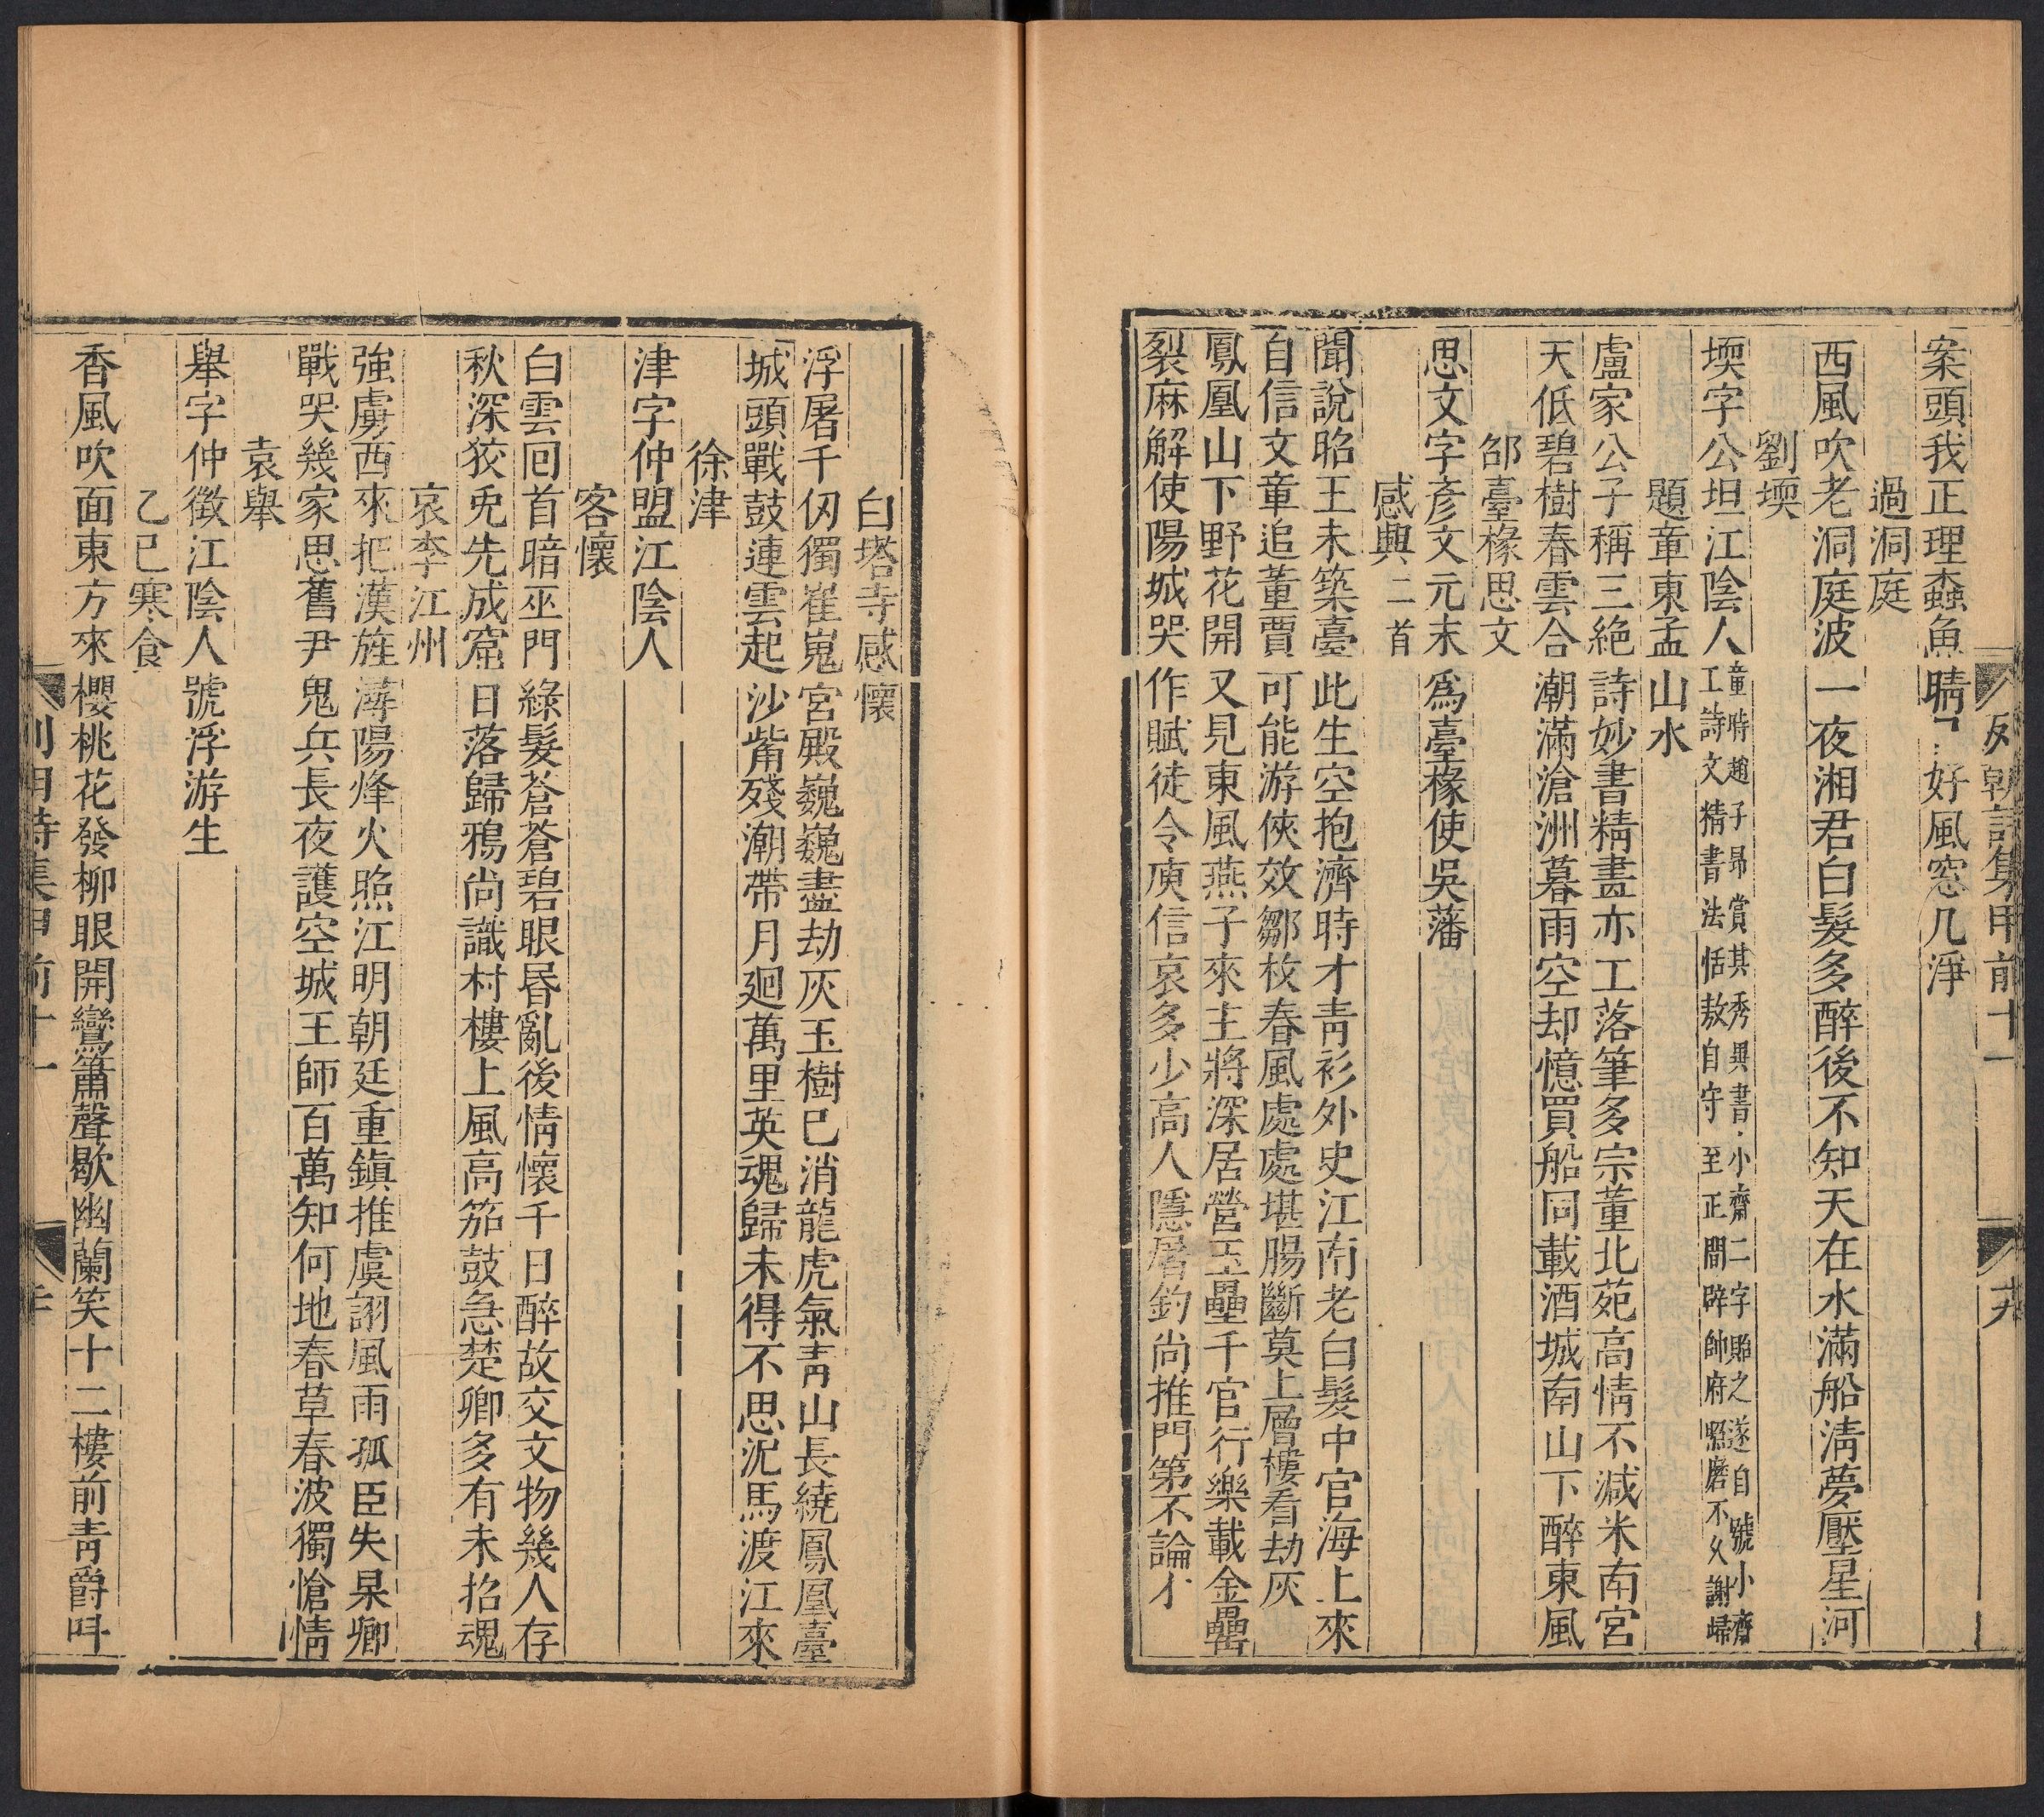 案頭我正理蟫魚晴好風窓几淨
過洞庭
西風吹老洞庭波一夜湘君白髮多醉後不知天在水滿船淸夢壓星河
劉堧
堧字公坦江陰人童時趙子昂賞其秀異書小齋二字貽之遂自號小齋工詩文精書法恬敖自守至正間辟帥府照磨不久謝歸
題童東孟山水
盧家公子稱三絕詩妙書精畫亦工落筆多宗董北苑高情不減米南宮
天低碧樹春雲合潮滿滄洲暮雨空却憶買船同載酒城南山下醉東風
邰臺椽思文
思文字彥文元末爲臺椽使吳藩
感興二首
聞說昭王未築臺此生空抱濟時才靑衫外史江南老白髮中官海上來
自信文章追董賈可能游俠效鄒枚春風處處堪腸斷莫上層樓看劫灰
鳳凰山下野花開又見東風燕子來主將深居營玉壘千官行樂載金罍
裂麻解使陽城哭作賦徒令庾信哀多少高人隱屠釣尚推門第不論才
列朝詩集甲前十一
白塔寺感懷
浮屠千仞獨崔嵬宮殿巍巍盡劫灰玉樹已消龍虎氣靑山長繞鳳凰臺
城頭戰鼓連雲起沙觜殘潮帶月廻萬里英魂歸未得不思泥馬渡江來
徐津
津字仲盟江陰人
客懷
白雲回首暗巫門綠髮蒼蒼碧眼昏亂後情懷千日醉故交文物幾人存
秋深狡兎先成窟日落歸鴉尚識村樓上風高笳鼓急楚卿多有未招魂
哀李江州
強虜西來把漢旌潯陽烽火照江明朝廷重鎮推虞詡風雨孤臣失杲卿
戰哭幾家思舊尹鬼兵長夜護空城王師百萬知何地春草春波獨愴情
袁舉
舉字仲徵江陰人號浮游生
乙巳寒食
香風吹面東方來櫻桃花發柳眼開鸞簫聲歇幽蘭笑十二樓前靑爵呌
列朝詩集甲前十一